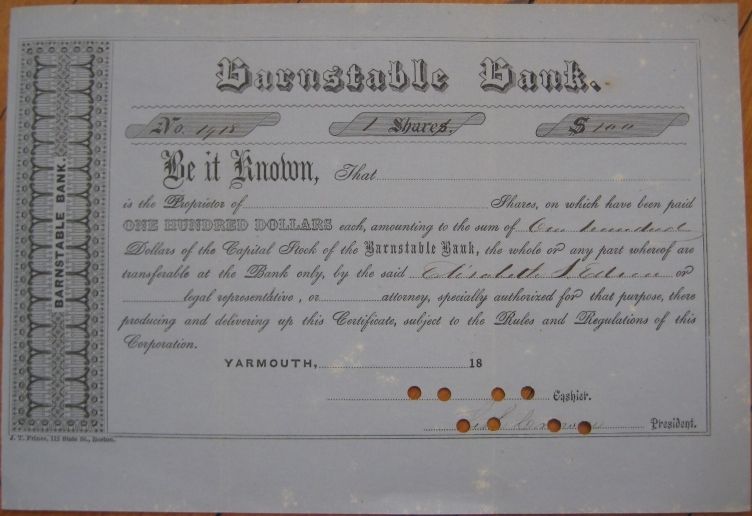 Barnstable Bank.
No. 1918 1 Shares. $ 100
Be it Known, That
is the Proprietor of Shares, on which have been paid
ONE HUNDRED DOLLARS each, amounting to the sum of One hundred
Dollars of the Capital Stock of the Barnstable Bank, the whole or any part whereof are
transferable at the Bank only, by the said Elisabeth or
legal representative, or attorney, specially authorized for that purpose, there
producing and delivering up this Certificate, subject to the Rules and Regulations of this
Corporation.
YARMOUTH, 18
Cashier.
President.
BARNSTABLE BANK.
J. T. Prince, 112 State St., Boston.